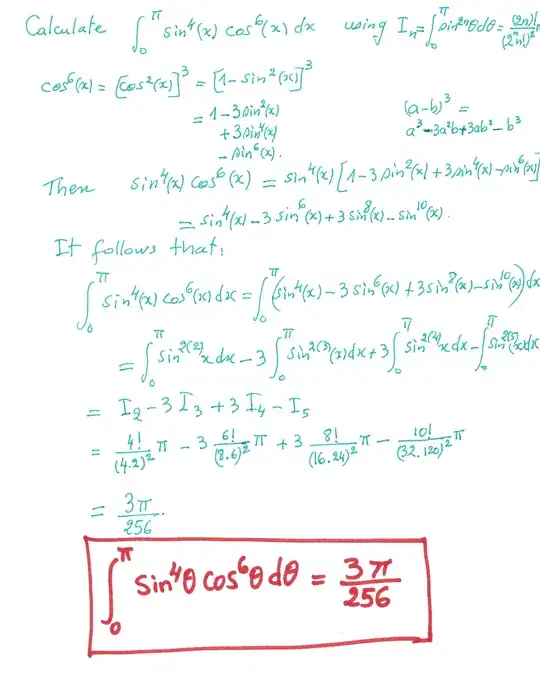 Calculate ∫₀^π sin⁴(x) cos⁶(x) dx using Iₙ = ∫₀^π sin²ⁿθdθ = (2n)!/(2ⁿn!)² π
cos⁶(x) = [cos²(x)]³ = [1 - sin²(x)]³
= 1 - 3sin²(x) (a-b)³ =
+ 3sin⁴(x) a³-3a²b+3ab²-b³
- sin⁶(x).
Then sin⁴(x) cos⁶(x) = sin⁴(x)[1 - 3sin²(x) + 3sin⁴(x) - sin⁶(x)]
= sin⁴(x) - 3 sin⁶(x) + 3 sin⁸(x) - sin¹⁰(x).
It follows that:
∫₀^π sin⁴(x) cos⁶(x) dx = ∫₀^π (sin⁴(x) - 3 sin⁶(x) + 3 sin⁸(x) - sin¹⁰(x)) dx
= ∫₀^π sin²⁽²⁾x dx - 3 ∫₀^π sin²⁽³⁾(x) dx + 3 ∫₀^π sin²⁽⁴⁾x dx - ∫₀^π sin²⁽⁵⁾x dx
= I₂ - 3 I₃ + 3 I₄ - I₅
= 4!/(4.2)² π - 3 6!/(8.6)² π + 3 8!/(16.24)² π - 10!/(32.120)² π
= 3π/256.
∫₀^π sin⁴θ cos⁶θ dθ = 3π/256